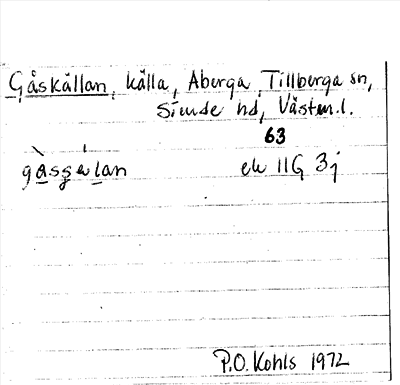 Gåskällan, källa, Åberga, Tillberga sn,
Siende hd, Västm.l.
63
ek 11G 3j
P.O. Kohls 1972